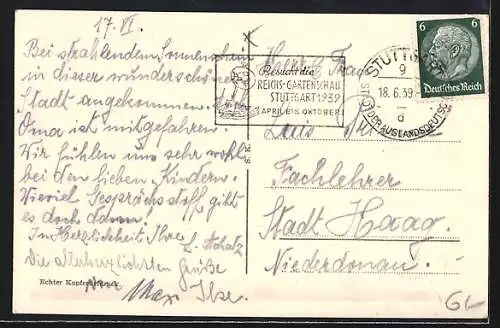 17. VI.
Bei strahlendem Sonnenschein
in dieser wunderschönen
Stadt angekommen.
Oma ist mitgefahren.
Wir fühlen uns sehr wohl
bei den lieben Kindern.
Wieviel Gesprächsstoff gibt
es doch dann!
In Herzlichkeit Ihre
Die allerherzlichsten Grüße
Max Ilse.
Echter Kupfertiefdruck
Besucht die
REICHS-GARTENSCHAU
STUTTGART 1939
APRIL BIS OKTOBER
STUTTGART
9
18.6.39
d
STADT DER AUSLANDSDEUTSCHEN
6 6
Deutsches Reich
Fachlehrer
Stadt Haag
Niederdonau.